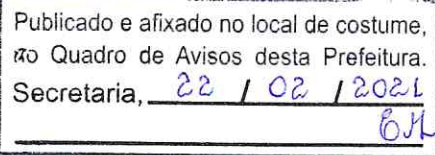 Publicado e afixado no local de costume,
no Quadro de Avisos desta Prefeitura.
Secretaria, 22 / 02 / 2021